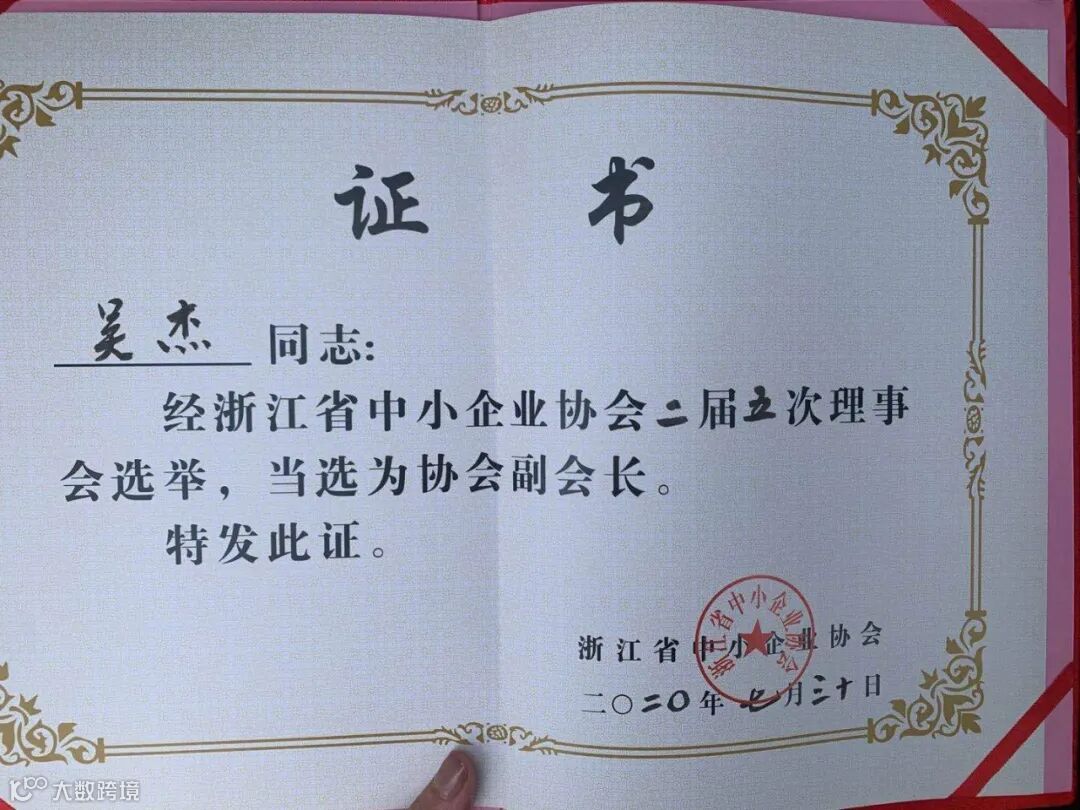 证 书
吴杰 同志:
经浙江省中小企业协会二届五次理事
会选举，当选为协会副会长。
特发此证。
浙江省中小企业协会
浙江省中小企业协会
二〇二〇年七月三十日
大数跨境